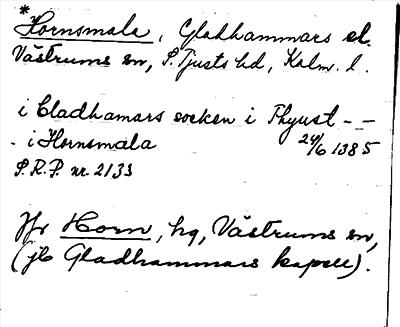 * Hornsmala, Gladhammars el.
Västrums sn, S. Tjusts hd, Kalm. l.
i Gladhamars socken i Thyust - -
- i Hornsmala 24/6 1385
S.R.P. nr. 2133
Jfr Horn, hg, Västrums sn,
(jb Gladhammars kapell).